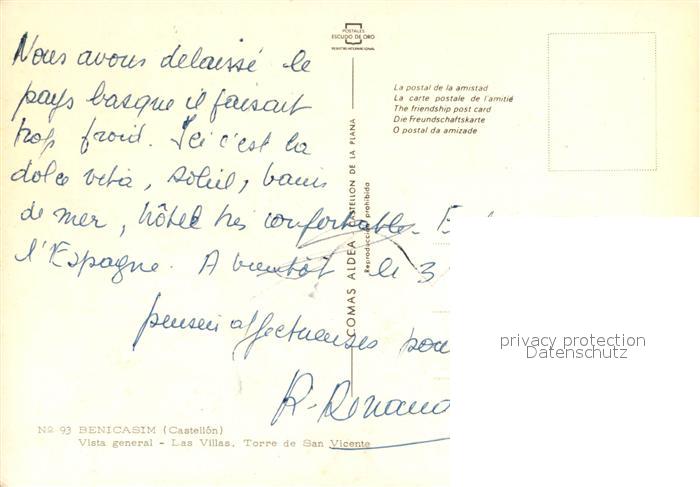 POSTALES
ESCUDO DE ORO
REGISTRO INTERNACIONAL
Nous avons delaissé le
pays basque il faisait
trop froid. Ici c'est la
dolce vita, soleil, bains
de mer, hôtel très confortable.
l'Espagne. A bientôt le 3
pensées affectueuses pour
R. Renaud
La postal de la amistad
La carte postale de l'amitié
The friendship post card
Die Freundschaftskarte
O postal da amizade
COMAS ALDEA - CASTELLON DE LA PLANA
Reproducción prohibida
privacy protection
Datenschutz
Nº 93 BENICASIM (Castellón)
Vista general - Las Villas, Torre de San Vicente